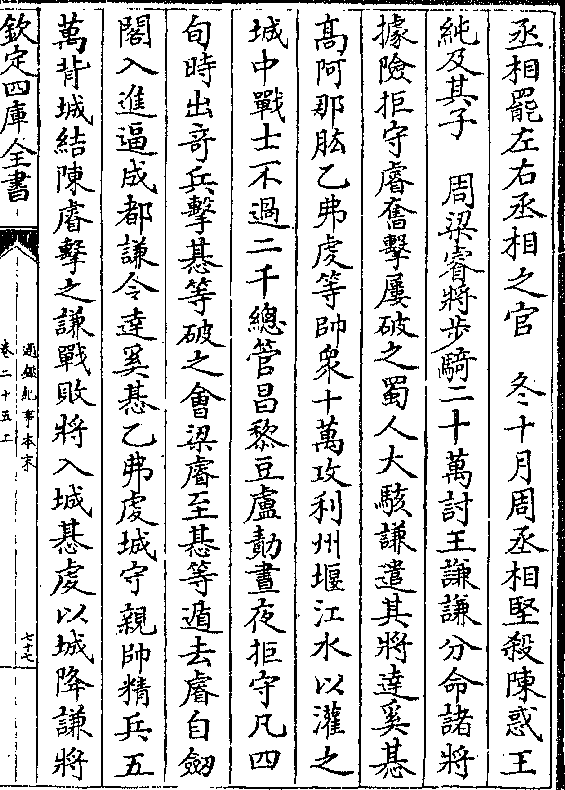 丞相罷左右丞相之官　冬十月周丞相堅殺陳惑王
純及其子　周梁睿將步騎二十萬討王謙謙分命諸將
據險拒守睿奮擊屢破之蜀人大駭謙遣其將達奚惎
高阿那肱乙弗虔等帥衆十萬攻利州堰江水以灌之
城中戰士不過二千總管昌黎豆盧勣晝夜拒守凡四
旬時出竒兵擊惎等破之會梁睿至惎等遁去睿自劒
閣入進逼成都謙令達奚惎乙弗虔城守親帥精兵五
萬背城結陳睿擊之謙戰敗將入城惎虔以城降謙將
欽定四庫全書
通鑑紀事本末
卷二十五上
七十七